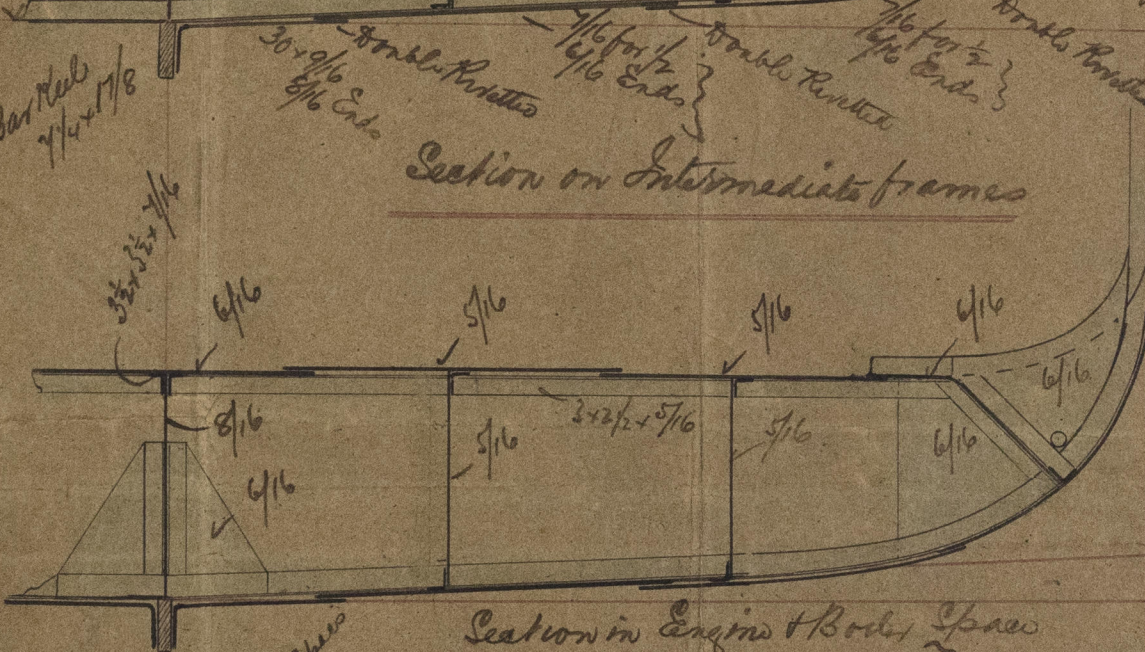 Bar Keel
7 1/4 x 1 7/8
30 x 9/16
8/16 Ends
Double Rivetted
7/16 for 1/2
6/16 Ends }
Double Rivetted
7/16 for 1/2
6/16 Ends }
Double Rivetted
Section on Intermediate frames
3 1/2 x 3 1/2 x 7/16
6/16
5/16
5/16
6/16
6/16
8/16
3 x 3 1/2 x 5/16
5/16
5/16
6/16
6/16
Section in Engine & Boiler Space